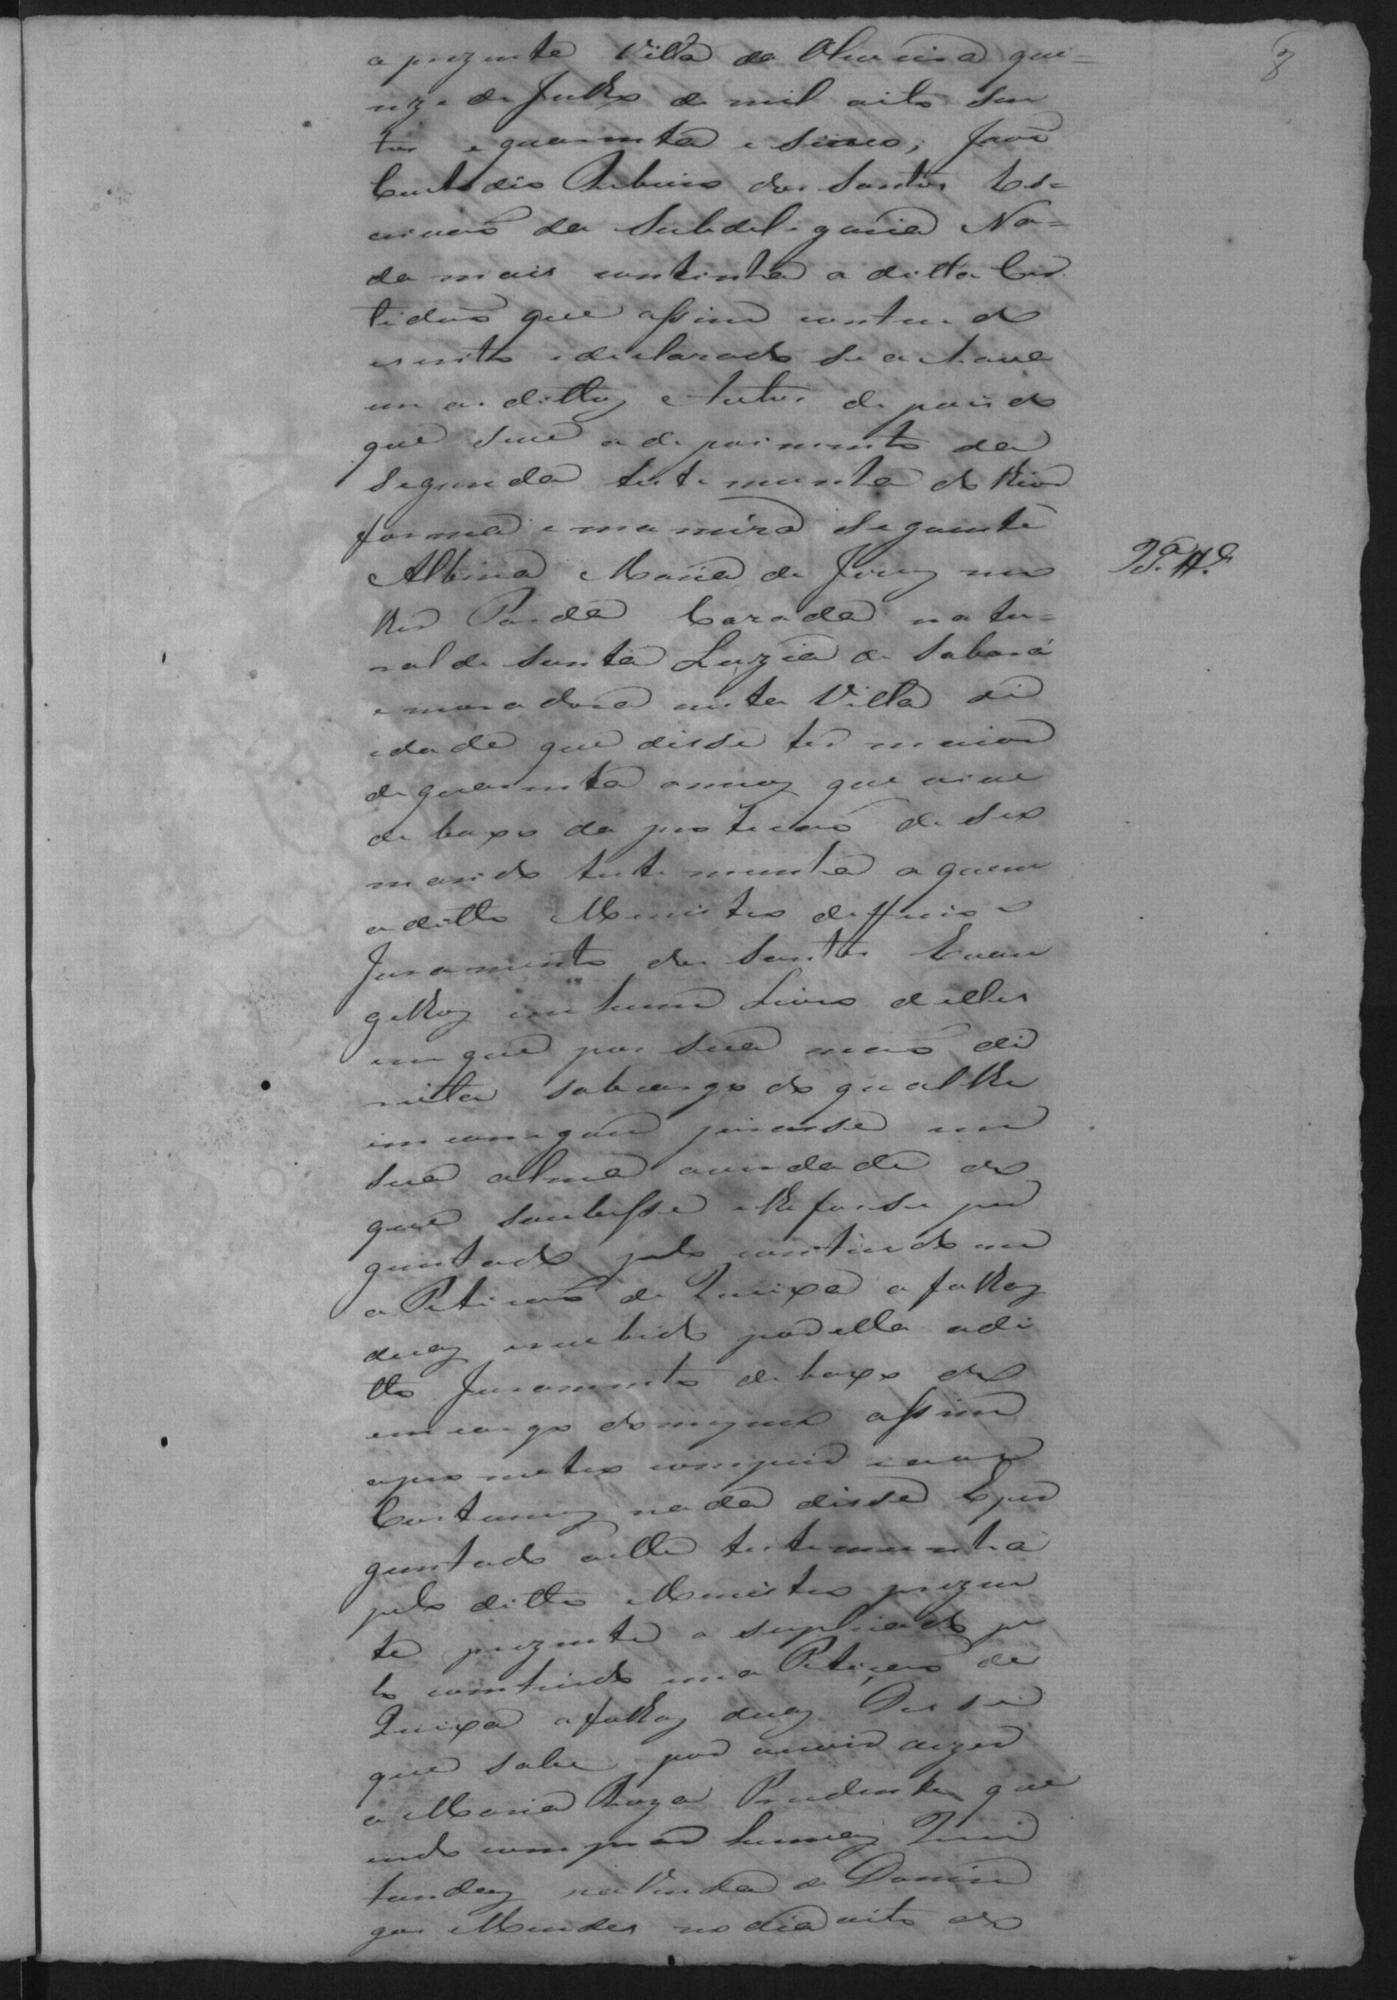 8
a prezente Villa de Oliveira qui=
nze de Julho de mil oito sen
tos e quarenta e sinco, João
Custodio Ribeiro dos Santos Es=
crivão da Subdeligacia Na=
da mais continha a ditta Cer
tidaõ que assim contendo
escrito e declarado se achava
em os dittos Autos depois do
que se o depoimento da
segunda testemunha do thior
forma e maneira seguinte
Albina Maria de Jesus mu
lher Parda Cazada natu=
ral de Santa Luzia de Sabará
e moradora nesta Villa de
idade que disse ter maior
de quarenta annos que vive
debaxo da proteçaõ de seo
marido testemunha a quem
o ditto Menistro defferio o
Juramento dos Santos Evan
gelhos em hum Livro delles
em que por sua maõ di
reita sob cargo do qual lhe
emcarregou jurasse em
sua alma a verdade do
que soubesse e lhe fosse per
guntado pelo contiudo em
a Petiçaõ de Queixa a folhas
duas recebido por ella o di
tto Juramento debaxo do
emcargo do mesmo assim
o prometeo comprir e aos
Costumes nada disse E per
guntado a ella testemunha
pelo ditto Menistro prezen
te prezente o suplicado pe
lo contiudo em a Petiçaõ de
Queixa a folhas duas Disse
que sabe por ouvir dizer
a Maria Roza Prudente que
indo comprar humas Qui
tandas na Venda de Domin
gos Mendes no dia oito do
2ª. Tª.